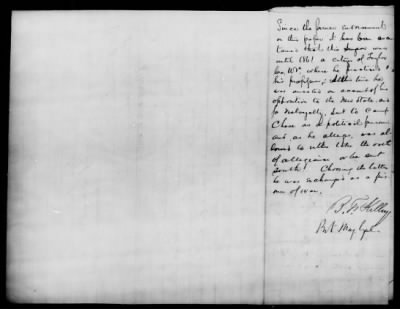 Since the former endorsement
on this paper it has been ascer
tained that this Surgeon was
until 1861 a citizen of Taylor
Co. W Va. where he practiced
his profession; at this time he
was arrested on account of his
opposition to the New State, and
for disloyalty, sent to Camp
Chase as a political prisoner
and, as he alleges, was al-
lowed to either take the oath
of allegiance or be sent
South! Choosing the latter
he was exchanged as a pris
oner of war.
B. F. Kelley
Brvt Maj Genl